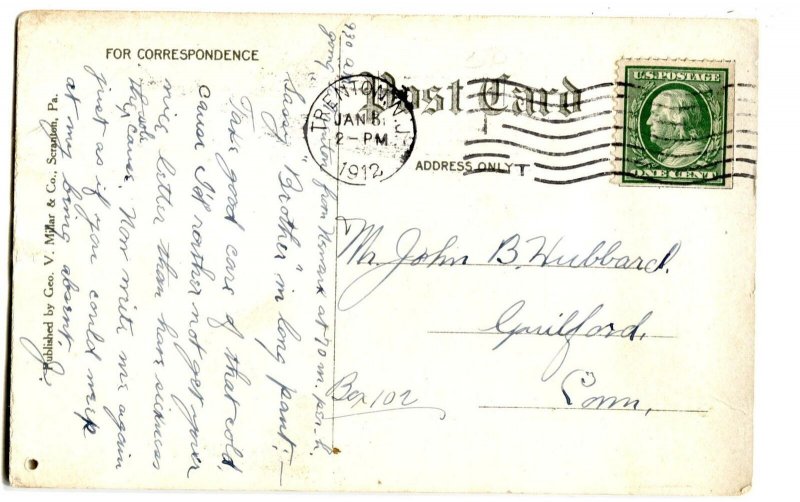 FOR CORRESPONDENCE
Post Card
ADDRESS ONLY
U.S. POSTAGE
ONE CENT
TRENTON, N.J.
JAN 8
2-PM
1912
Mr. John B. Hubbard.
Guilford,
Conn.
Box 102
9.30 a
going
from Newark at 70 mi. per h.
"Brother" in long pant;—
Take good care of that cold,
cause I'd rather not get your
nice letter than have sickness
the
the cause. Now write me again
just as if you could
at my being absent.
J.
Published by Geo. V. Millar & Co., Scranton, Pa.